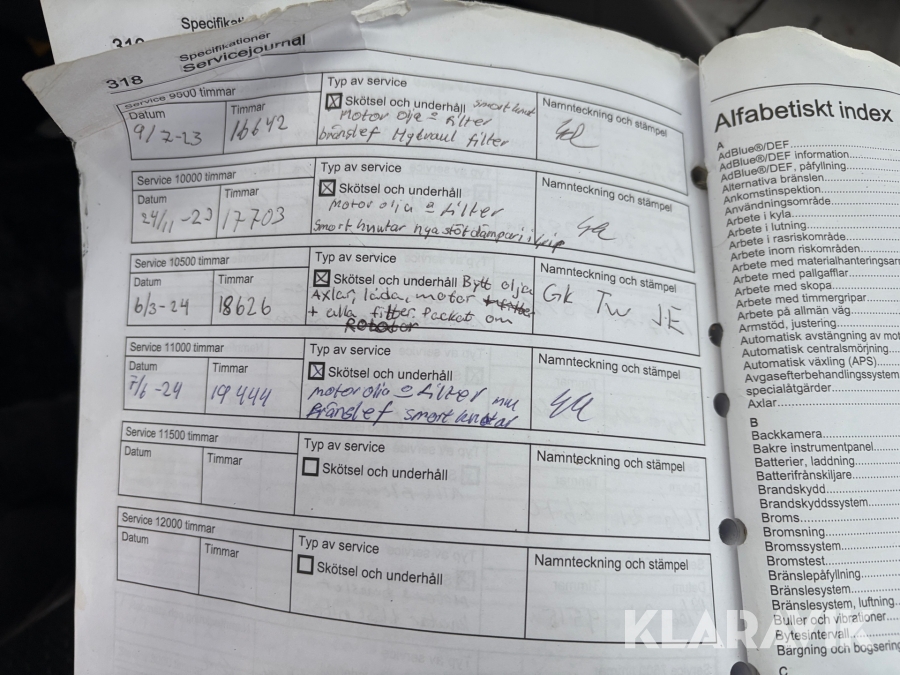 Specifikat
319
318
Specifikationer
Servicejournal
Service 9500 timmar
Datum
Timmar
Typ av service
Namnteckning och stämpel
9/7-23
16642
Skötsel och underhåll
motor olja o filter
bränslef Hydraul filter
Service 10000 timmar
Datum
Timmar
Typ av service
Namnteckning och stämpel
24/11-23
17703
Skötsel och underhåll
motor olja o filter
Smort knutar nya stötdämpar i
Service 10500 timmar
Datum
Timmar
Typ av service
Namnteckning och stämpel
6/3-24
18626
Skötsel och underhåll Bytt olja
Axlar, låda, motor
+ alla filter. Packat om
GK TW J-E
Service 11000 timmar
Datum
Timmar
Typ av service
Namnteckning och stämpel
/6-24
19444
Skötsel och underhåll
motor olja o filter
Bränslef smort knutar
Service 11500 timmar
Datum
Timmar
Typ av service
Namnteckning och stämpel
Skötsel och underhåll
Service 12000 timmar
Datum
Timmar
Typ av service
Namnteckning och stämpel
Skötsel och underhåll
Alfabetiskt index
A
AdBlue®/DEF
AdBlue®/DEF information
AdBlue®/DEF, påfyllning
Alternativa bränslen
Ankomstinspektion
Användningsområde
Arbete i kyla
Arbete i lutning
Arbete i rasriskområde
Arbete inom riskområden
Arbete med materialhanteringsarm
Arbete med pallgafflar
Arbete med skopa
Arbete med timmergripar
Arbete på allmän väg
Armstöd, justering
Automatisk avstängning av mot
Automatisk centralsmörjning
Automatisk växling (APS)
Avgasefterbehandlingssystem
specialåtgärder
Axlar
B
Backkamera
Bakre instrumentpanel
Batterier, laddning
Batterifrånskiljare
Brandskydd
Brandskyddssystem
Broms
Bromsning
Bromssystem
Bromstest
Bränslepåfyllning
Bränslesystem
Bränslesystem, luftning
Buller och vibrationer
Bytesintervall
Bargning och bogsering
C
KLARAVIK